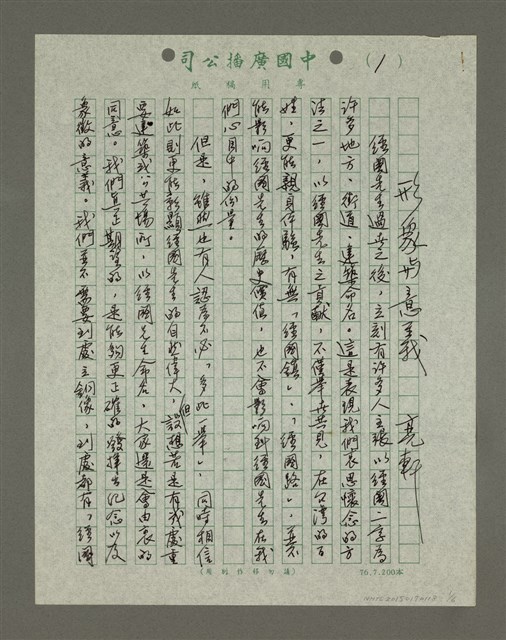 中國廣播公司
專用稿紙
(1)
形象与意義 亮軒
經國先生過世之後，立刻有許多人主張以經國二字為
許多地方、街道、建築命名。這是表現我們哀思懷念的方
法之一，以經國先生之貢獻，不僅舉世共見，在台灣的百
姓，更能親身体驗，有無「經國鎮」、「經國路」，並不
能影响經國先生的歷史價值，也不會影响到經國先生在我
們心目中的份量。
但是，雖然也有人認為不必「多此一舉」，同時相信
如此則更能彰顯經國先生的自然偉大，但設想若是有我處重
要建築或公共場所，以經國先生命名，大家還是會由衷的
同意。我們真正期望的，是能夠更正確的發揮出紀念以及
象徵的意義。我們並不需要到處立銅像，到處都有「經國
(請勿移作別用)
76.7.200本